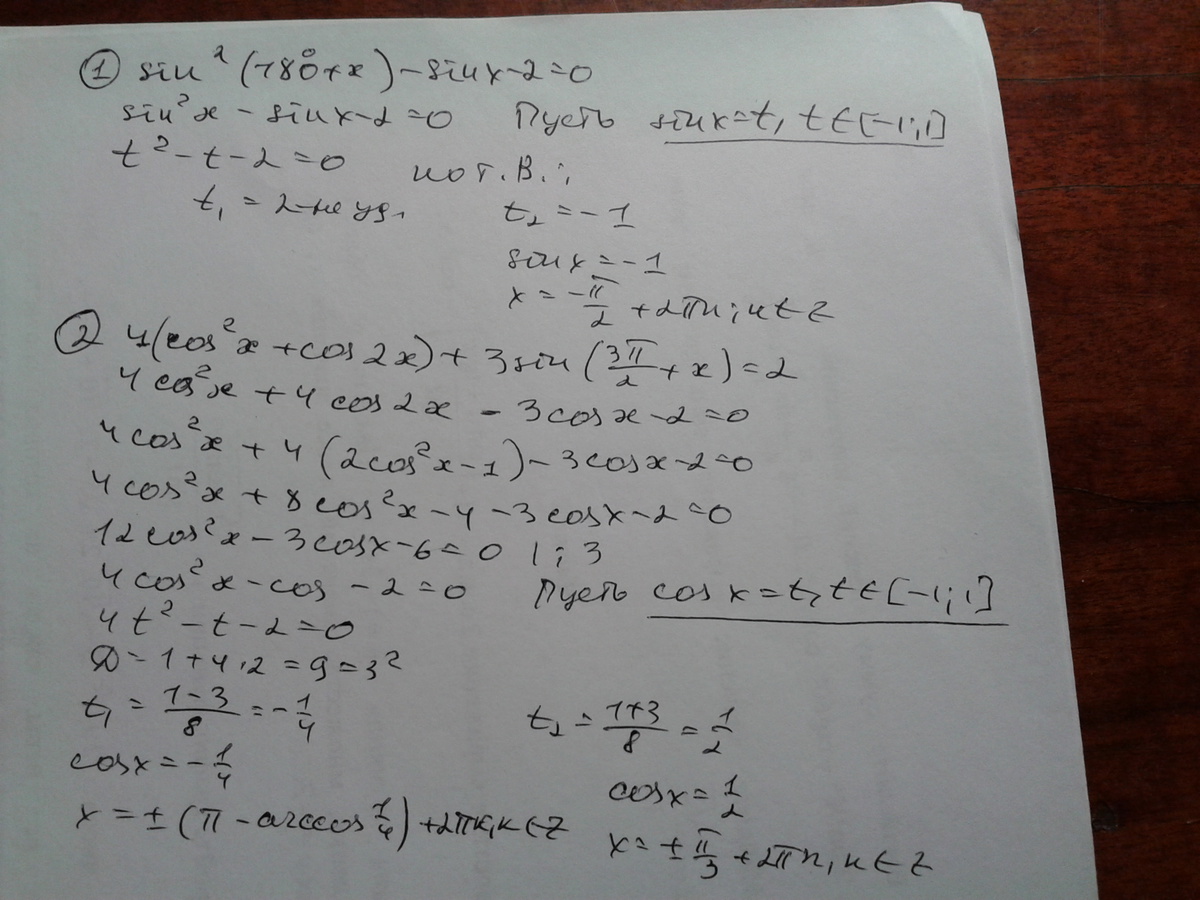 ① sin²(180°+x)-sinx-2=0
sin²x - sinx-2=0 Пусть sinx=t, t∈[-1;1]
t²-t-2=0 по т.В.:
t₁ = 2-не уд. t₂ = -1
sinx=-1
x = -π/2 +2πn; n∈Z
② 4(cos²x+cos2x)+3sin(3π/2+x)=2
4cos²x+4cos2x - 3cosx-2=0
4cos²x+4(2cos²x-1)-3cosx-2=0
4cos²x+8cos²x-4-3cosx-2=0
12cos²x-3cosx-6=0 |:3
4cos²x-cos-2=0 Пусть cosx=t, t∈[-1;1]
4t²-t-2=0
D=1+4·2=9=3²
t₁ = (1-3)/8 = -1/4 t₂ = (1+3)/8 = 1/2
cosx=-1/4 cosx=1/2
x=±(π-arccos 1/4)+2πk, k∈Z x=±π/3+2πn, n∈Z